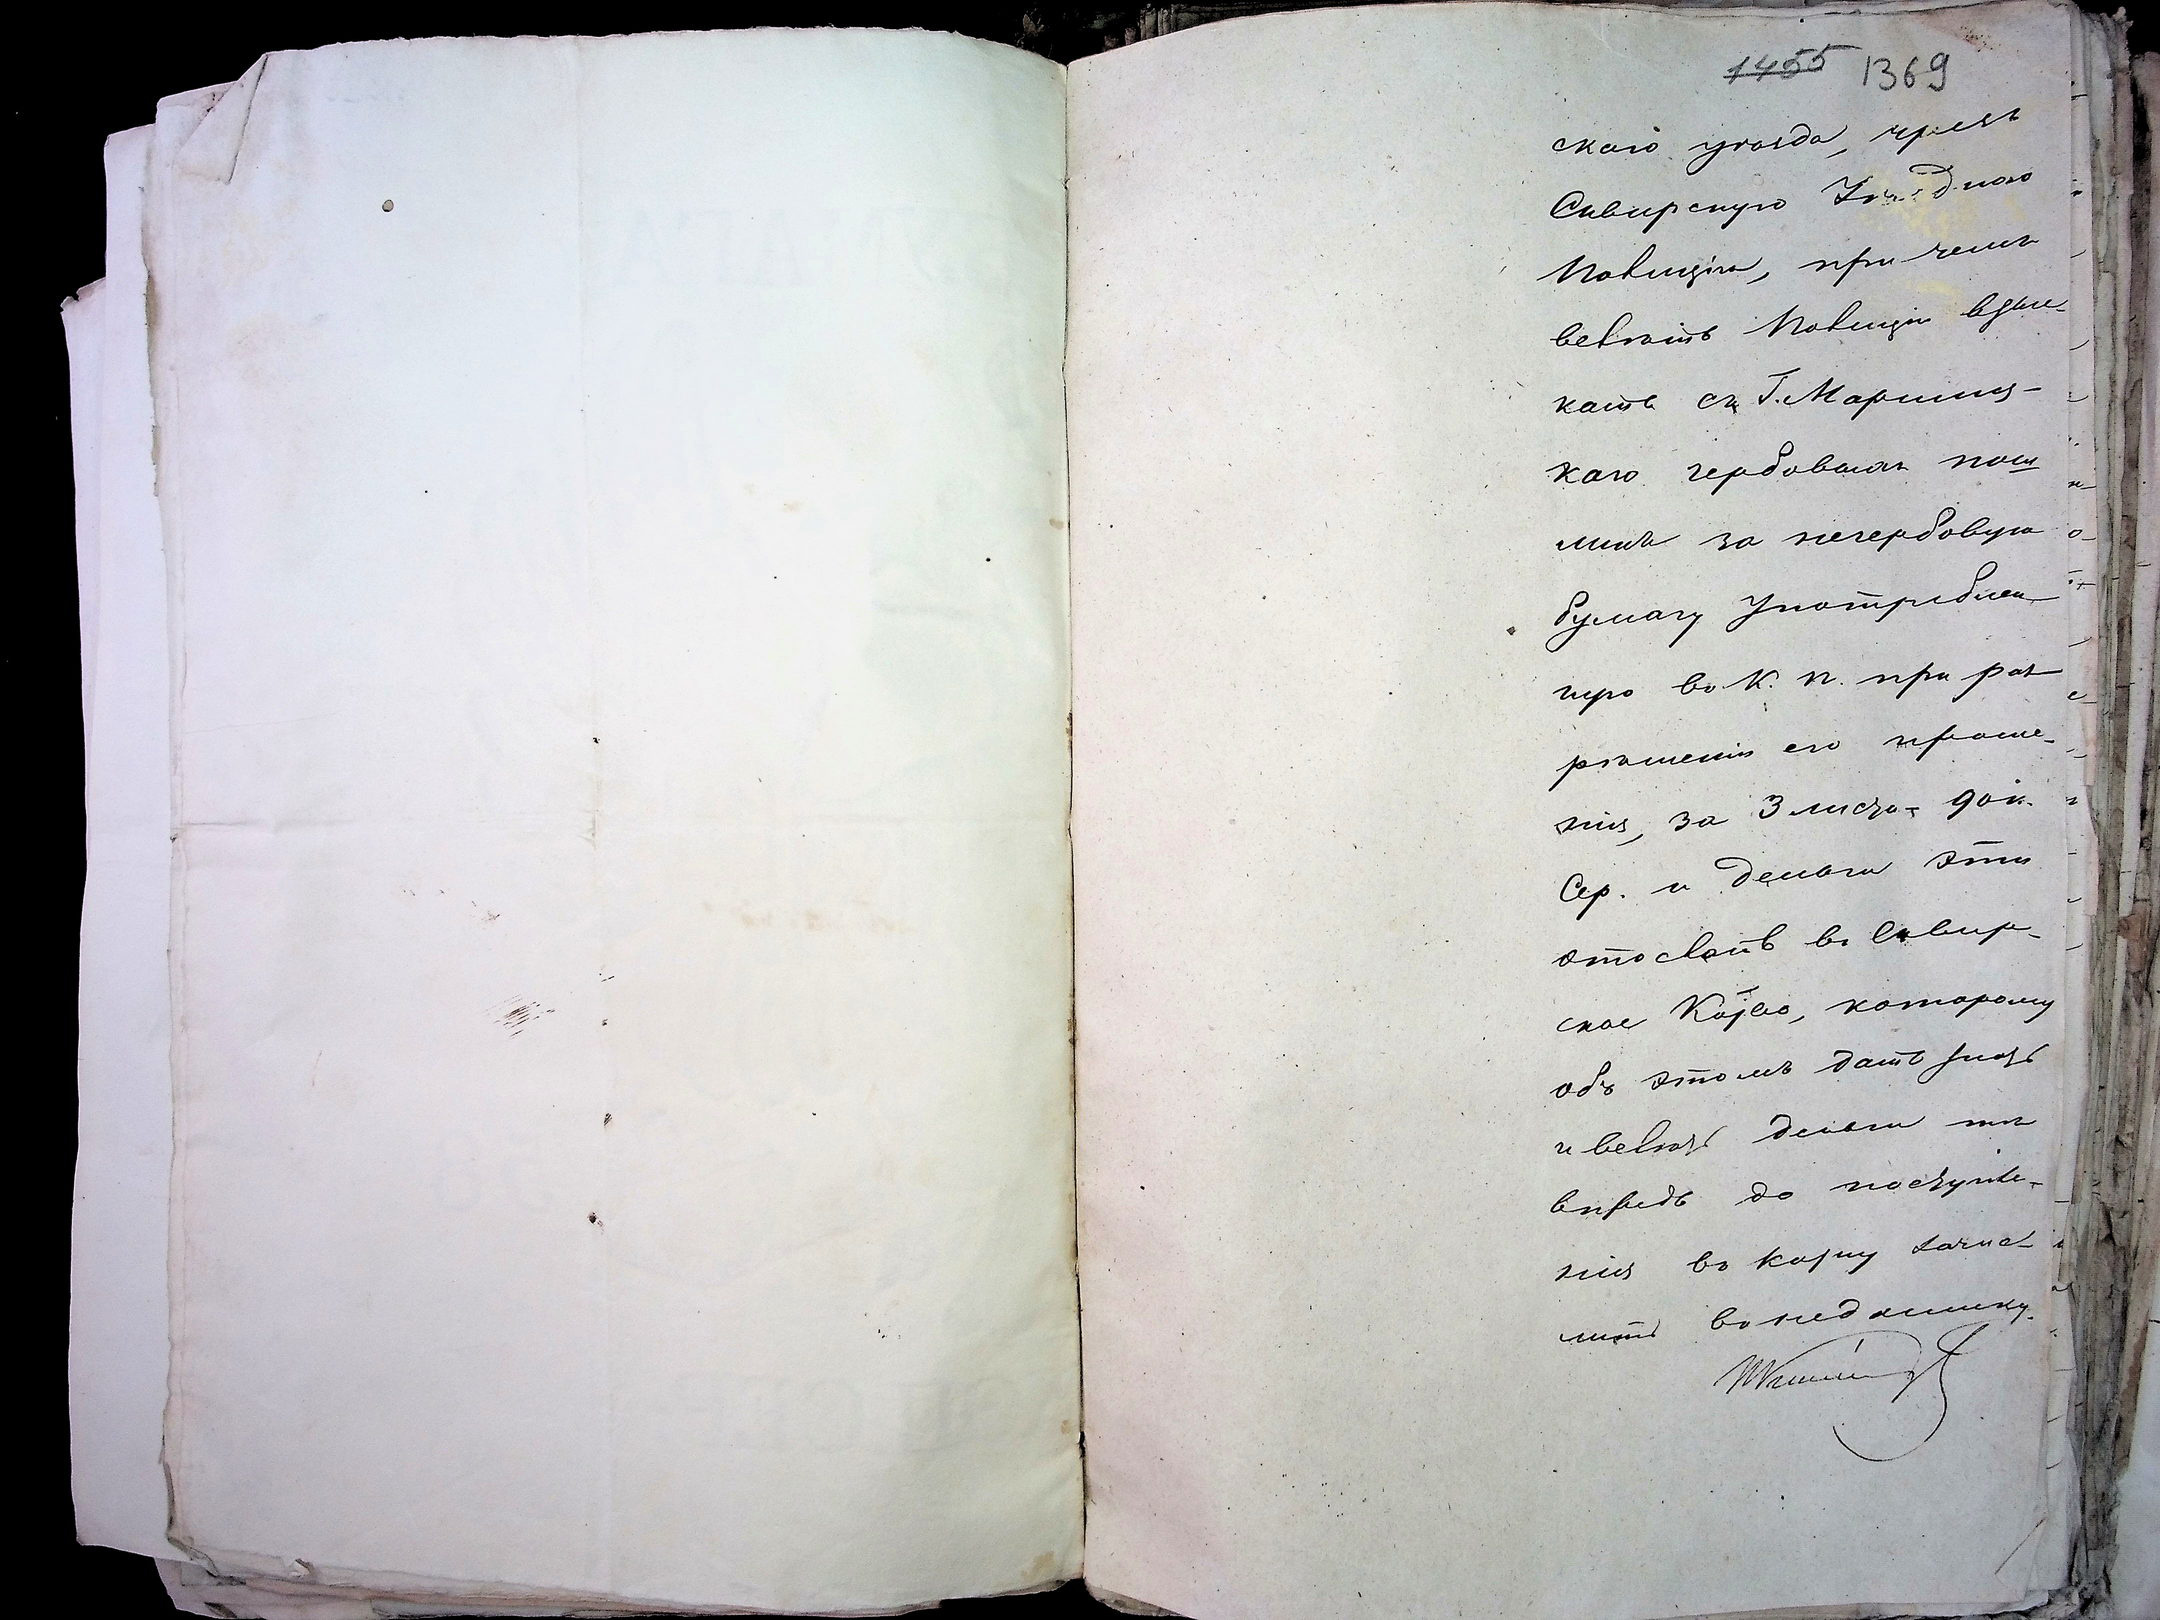 1455 1369
скаго уѣзда, чрезъ
Сквирскую Уѣздную
Полицію, при чемъ
велѣть Полиціи взыс-
кать съ Г. Маршиц-
каго гербовыхъ пош
линъ за негербовую
бумагу Употреблен
ную въ К. П. при раз
рѣшеніи его проше-
нія, за 3 листа - 90 к.
Сер. и деньги эти
отослать въ Сквир-
ское Каз̃во, которому
объ этомъ дать знать
и велѣть деньги тѣ
впредь до поступле-
нія въ казну зачис
лить въ недоимку.